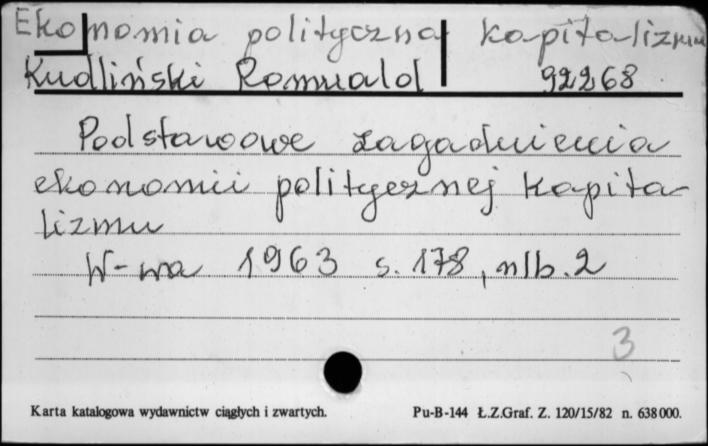 Ekonomia polityczna kapitalizmu
Kudliński Romuald 92268
Podstawowe zagadnienia
ekonomii politycznej kapita-
lizmu
W-wa 1963 s. 178, nlb. 2
3
Karta katalogowa wydawnictw ciągłych i zwartych. Pu-B-144 Ł.Z.Graf. Z. 120/15/82 n. 638000.